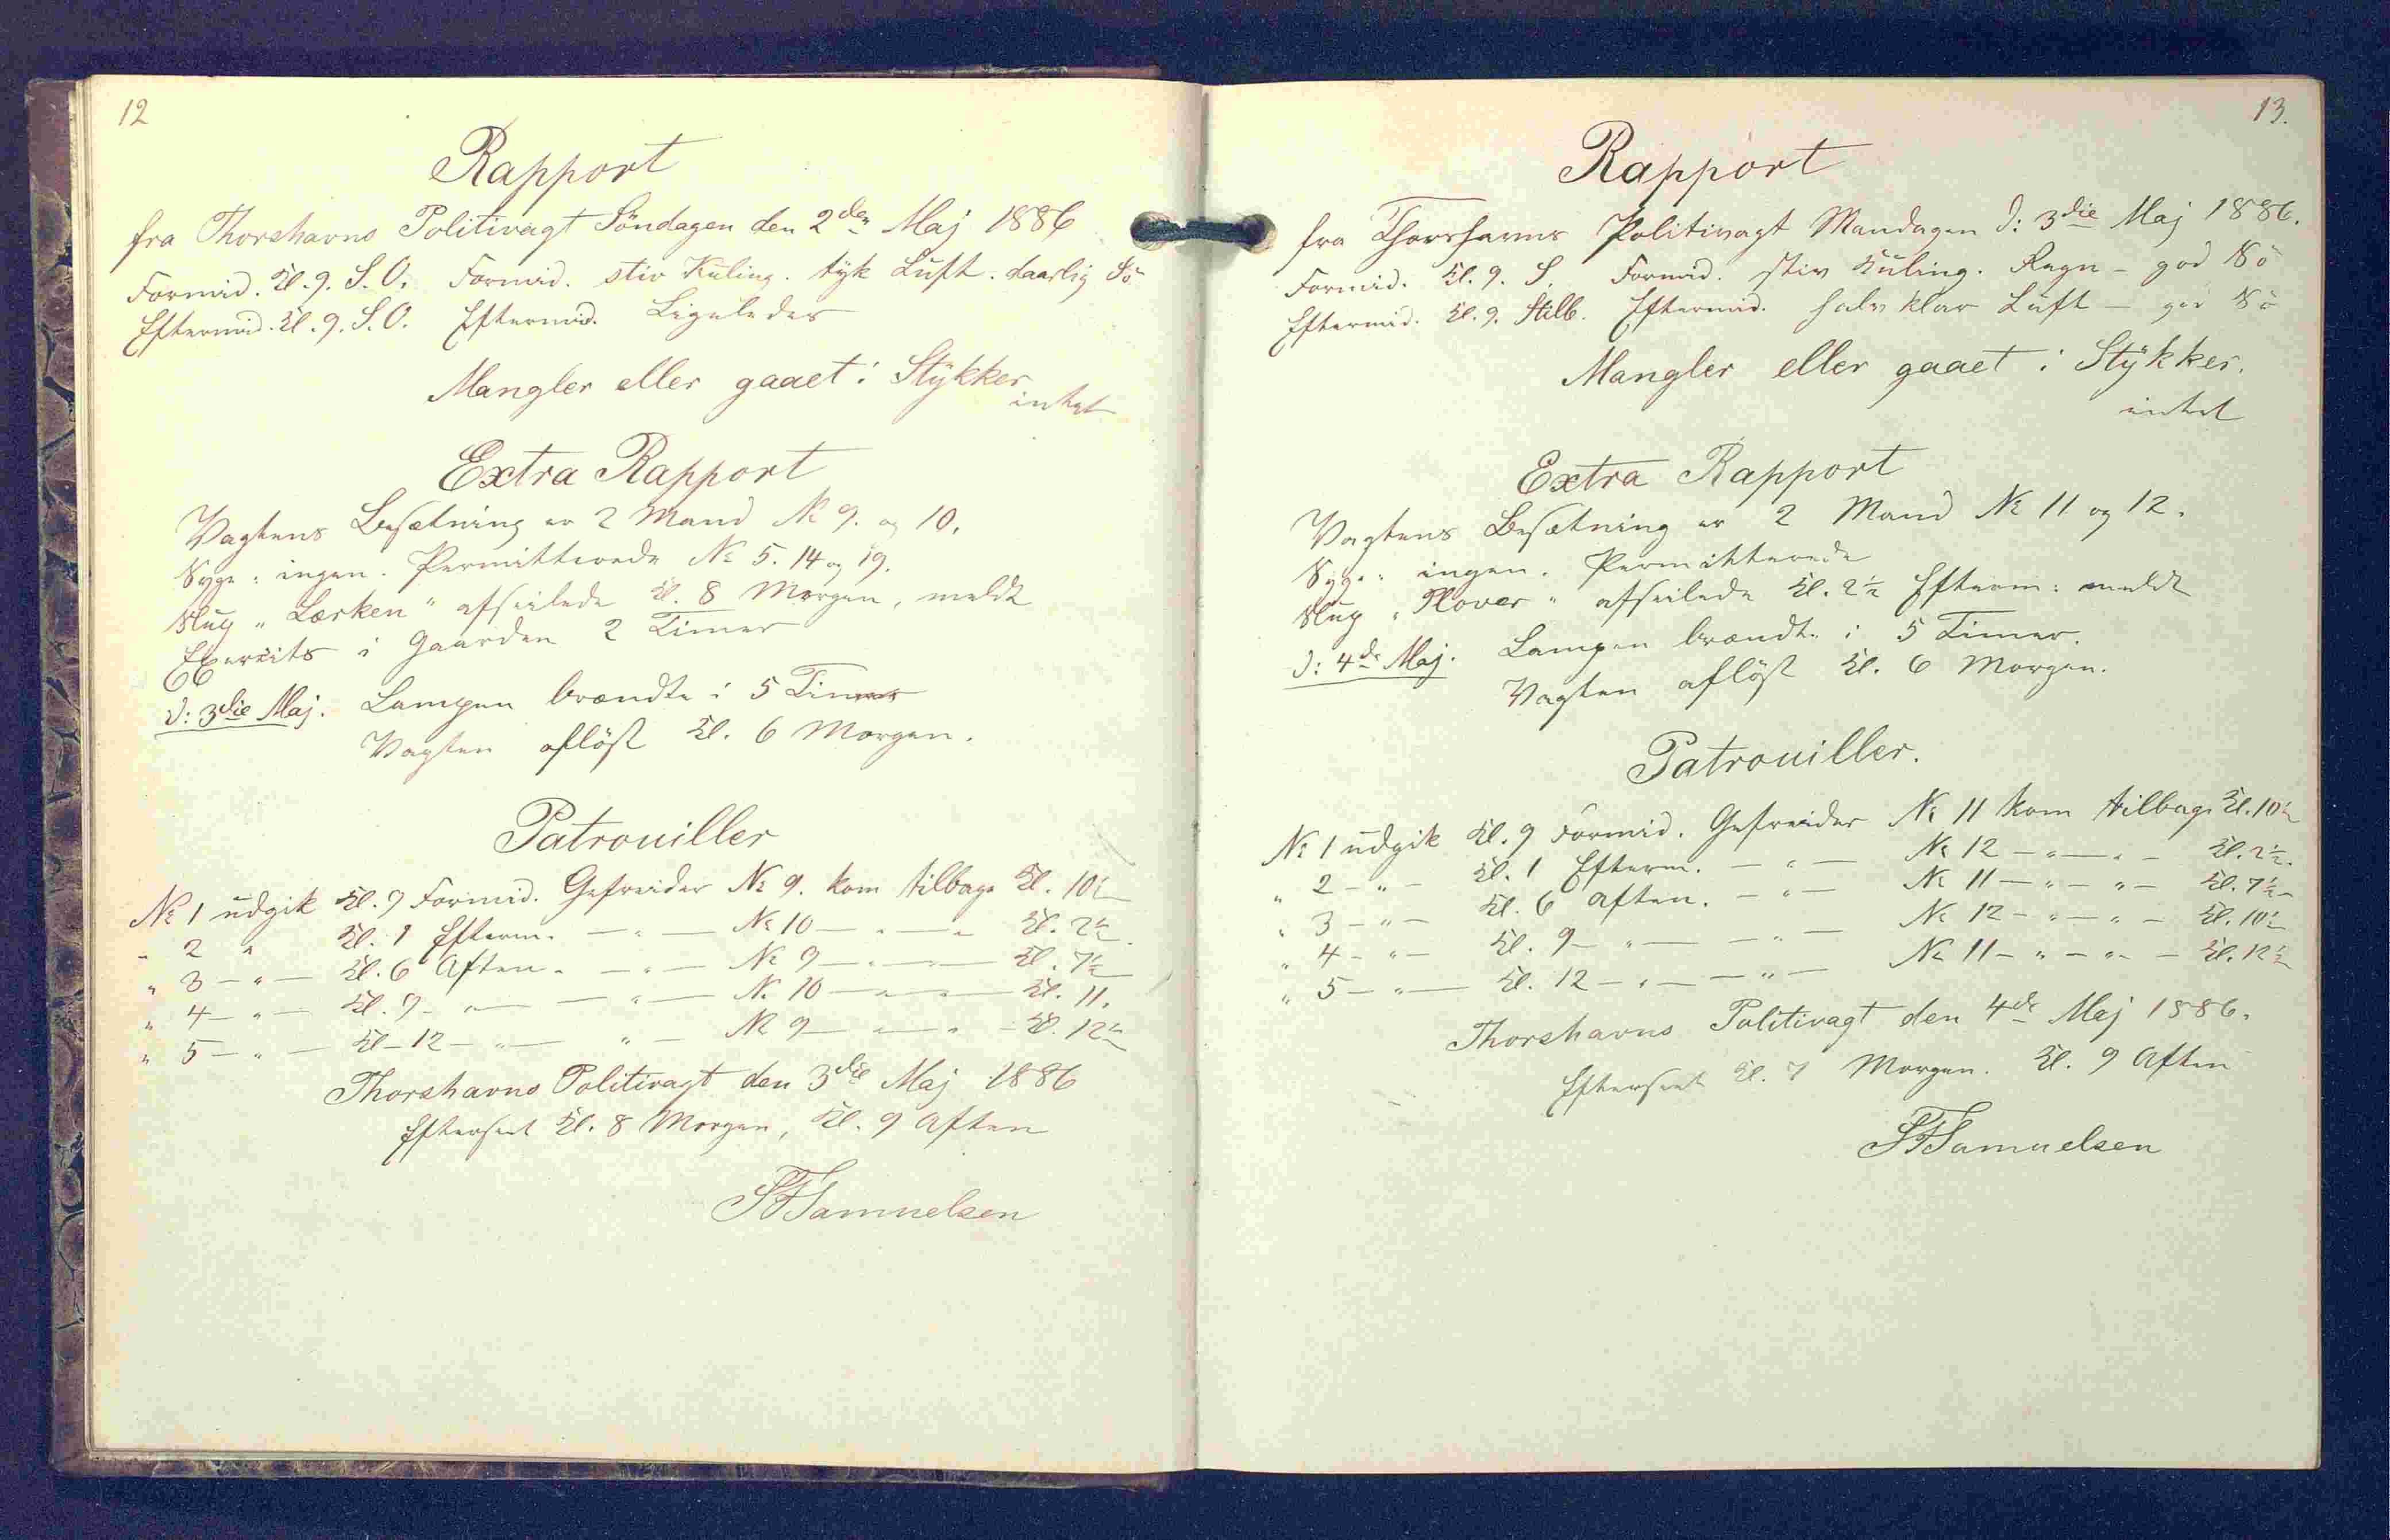 12
Rapport
fra Thorshavns Politivagt Söndagen den 2den Maj 1886
Formid. Kl. 9. S. O. Formid. stiv Kuling. tyk Luft. daarlig Sö
Eftermid. Kl. 9. S. O. Eftermid. Ligeledes
Mangler eller gaaet i Stykker
intet
Extra Rapport
Vagtens Besætning er 2 Mand № 9. og 10.
Syge: ingen. Permitterede № 5. 14 og 19.
Slup „Lærken" afseilede Kl. 8 Morgen, meldt
Exersits i Gaarden 2 Timer
d: 3die Maj. Lampen brændte i 5 Timer
Vagten aflöst Kl. 6 Morgen.
Patrouiller
№ 1 udgik Kl. 9 Formid. Gefreider № 9. kom tilbage Kl. 10½
" 2 " Kl. 1 Efterm. — " — № 10 — " — " Kl. 2½.
" 3 — " — Kl. 6 Aften. — " — № 9 — " — Kl. 7½
" 4 — " — Kl. 9 — " — — " — № 10 — " — " — Kl. 11.
" 5 — " — Kl. 12 — " — " — № 9 — " — " — Kl. 12½
Thorshavns Politivagt den 3die Maj 1886
Efterseet Kl. 8 Morgen, Kl. 9 Aften
SFSamuelsen
13.
Rapport
fra Thorshavns Politivagt Mandagen d: 3die Maj 1886.
Formid. Kl. 9. S. Formid. stiv Kuling. Regn – god Sö
Eftermid. Kl. 9. Stille. Eftermid. halv klar Luft – god Sö
Mangler eller gaaet i Stykker.
intet
Extra Rapport
Vagtens Besætning er 2 Mand № 11 og 12.
Syge: ingen. Permitterede
Slup „Plover" afseilede Kl. 2½ Efterm: meldt
d: 4de Maj. Lampen brændte i 5 Timer.
Vagten aflöst Kl. 6 Morgen.
Patrouiller.
№ 1 udgik Kl. 9 Formid. Gefreider № 11 kom tilbage Kl. 10½
" 2 — " — Kl. 1 Efterm. — " — № 12 — " — " — Kl. 2½.
" 3 — " — Kl. 6 Aften. — " — № 11 — " — " — Kl. 7½
" 4 — " — Kl. 9 — " — — " — № 12 — " — " — Kl. 10½
" 5 — " — Kl. 12 — " — — " — № 11 — " — " — Kl. 12½
Thorshavns Politivagt den 4de Maj 1886.
Efterseet Kl. 7 Morgen. Kl. 9 Aften
SFSamuelsen